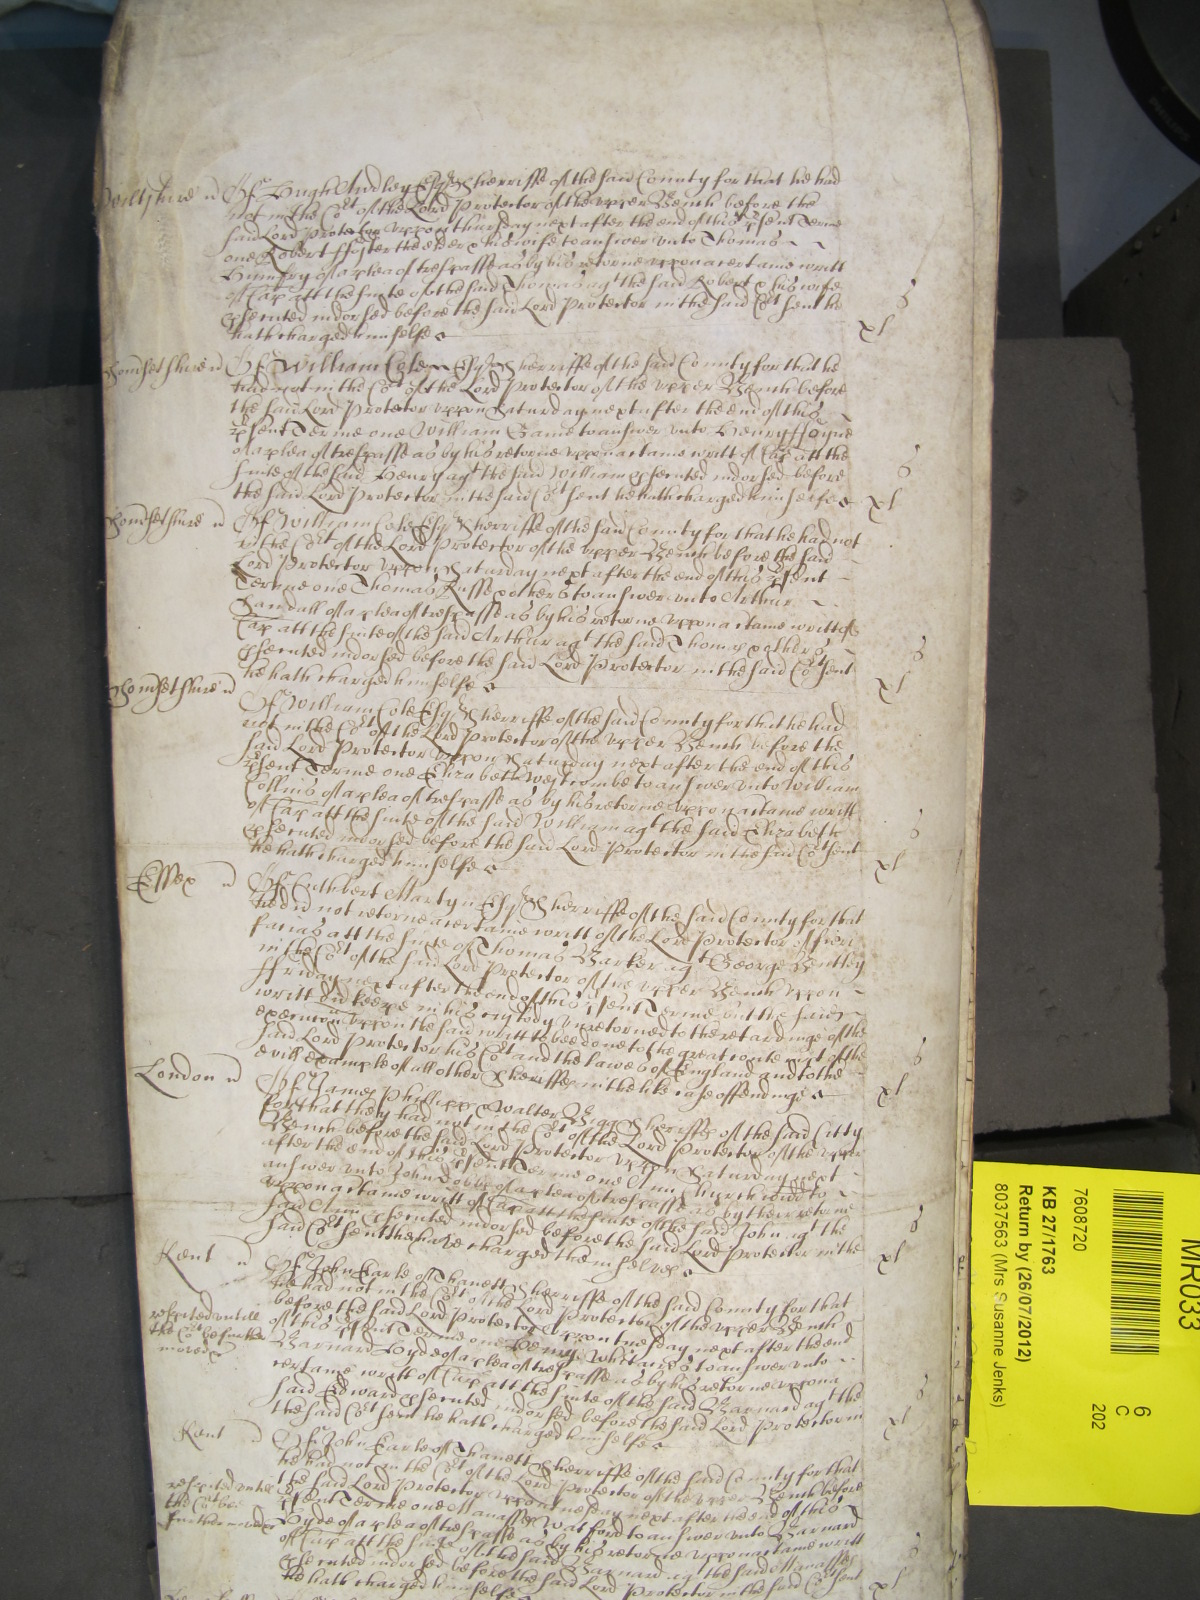 Wiltshire Of Hugh Audley Esqr Sherriffe of the said County for that he had
not in the Cort of the Lord Protector of the upper Bench before the
said Lord Protector uppon thursday next after the end of this psent Terme
one Robert the elder & his wife to answer unto Thomas
Humfry of a plea of trespasse as by his retorne uppon a certaine writt
of Cap att the suite of the said Thomas agt the said Robert & his wife
psented indorsed before the said Lord Protector in the said Cort sent he
hath charged himselfe xl s
Somsetshire Of William Cole Esqr Sherriffe of the said County for that he
had not in the Cort of the Lord Protector of the upper Bench before
the said Lord Protector uppon Saturday next after the end of this
psent Terme one William Same to answer unto Henry
of a plea of trespasse as by his retorne uppon a ctaine writt of Cap att the
suite of the said Henry agt the said William psented indorsed before
the said Lord Protector in the said Cort sent he hath charged himselfe xl s
Somsetshire Of William Cole Esqr Sherriffe of the said County for that he had not
in the Cort of the Lord Protector of the upper Bench before the said
Lord Protector uppon Saturday next after the end of this psent
Terme one Thomas Russe & others to answer unto Arthur
Sandall of a plea of trespasse as by his retorne uppon a ctaine writt of
Cap att the suite of the said Arthur agt the said Thomas & others
psented indorsed before the said Lord Protector in the said Cort sent
he hath charged himselfe xl s
Somsetshire Of William Cole Esqr Sherriffe of the said County for that he had
not in the Cort of the Lord Protector of the upper Bench before the
said Lord Protector uppon Saturday next after the end of this
psent Terme one Elizabeth Westcombe to answer unto William
Collins of a plea of trespasse as by his retorne uppon a ctaine writt
of Cap att the suite of the said William agt the said Elizabeth
psented indorsed before the said Lord Protector in the said Cort sent
he hath charged himselfe xl s
Essex Of Cuthbert Martyn Esqr Sherriffe of the said County for that
he did not retorne a certaine writt of the Lord Protector of fieri
facias att the suite of Thomas Barker agt George Bentley
in the Cort of the said Lord Protector of the upper Bench uppon
ffriday next after the end of this psent Terme but the same
writt did keepe in his custody unretorned to the retardinge of the
execucon uppon the said writt to bee done to the great contempt of the
said Lord Protector his Cort and the lawes of England and to the
evill example of all other Sherriffes in the like case offendinge xl s
London Of James Phillipps & Walter Bigg Sherriffs of the said Citty
for that they had not in the Cort of the Lord Protector of the upper
Bench before the said Lord Protector uppon Saturday next
after the end of this psent Terme one Ann Church widd to
answer unto John of a plea of trespasse as by their retorne
uppon a ctaine writt of Cap att the suite of the said John agt the
said Ann psented indorsed before the said Lord Protector in the
said Cort sent they have charged themselves xl s
Kent Of John Earle of Thanett Sherriffe of the said County for that
he had not in the Cort of the Lord Protector of the upper Bench
before the said Lord Protector uppon tuesday next after the end
of this psent Terme one to answer unto
Barnard Hyde of a plea of trespasse as by his retorne uppon a
certaine writt of Cap att the suite of the said Barnard agt the
said Edward psented indorsed before the said Lord Protector in
the said Cort sent he hath charged himselfe xl s
respited untill
the Cort be further
moved
Kent Of John Earle of Thanett Sherriffe of the said County for that
he had not in the Cort of the Lord Protector of the upper Bench before
the said Lord Protector uppon tuesday next after the end of this
psent Terme one Manasses Watford to answer unto Barnard
Hyde of a plea of trespasse as by his retorne uppon a ctaine writt
of Cap att the suite of the said Barnard agt the said Manasses
psented indorsed before the said Lord Protector in the said Cort sent
he hath charged himselfe xl s
respited untill
the Cort bee
further moved
MR033
7608720
KB 27/1763
Return by (26/07/2012)
8037563 (Mrs Susanne Jenks)
6
C
202
PHILIPS